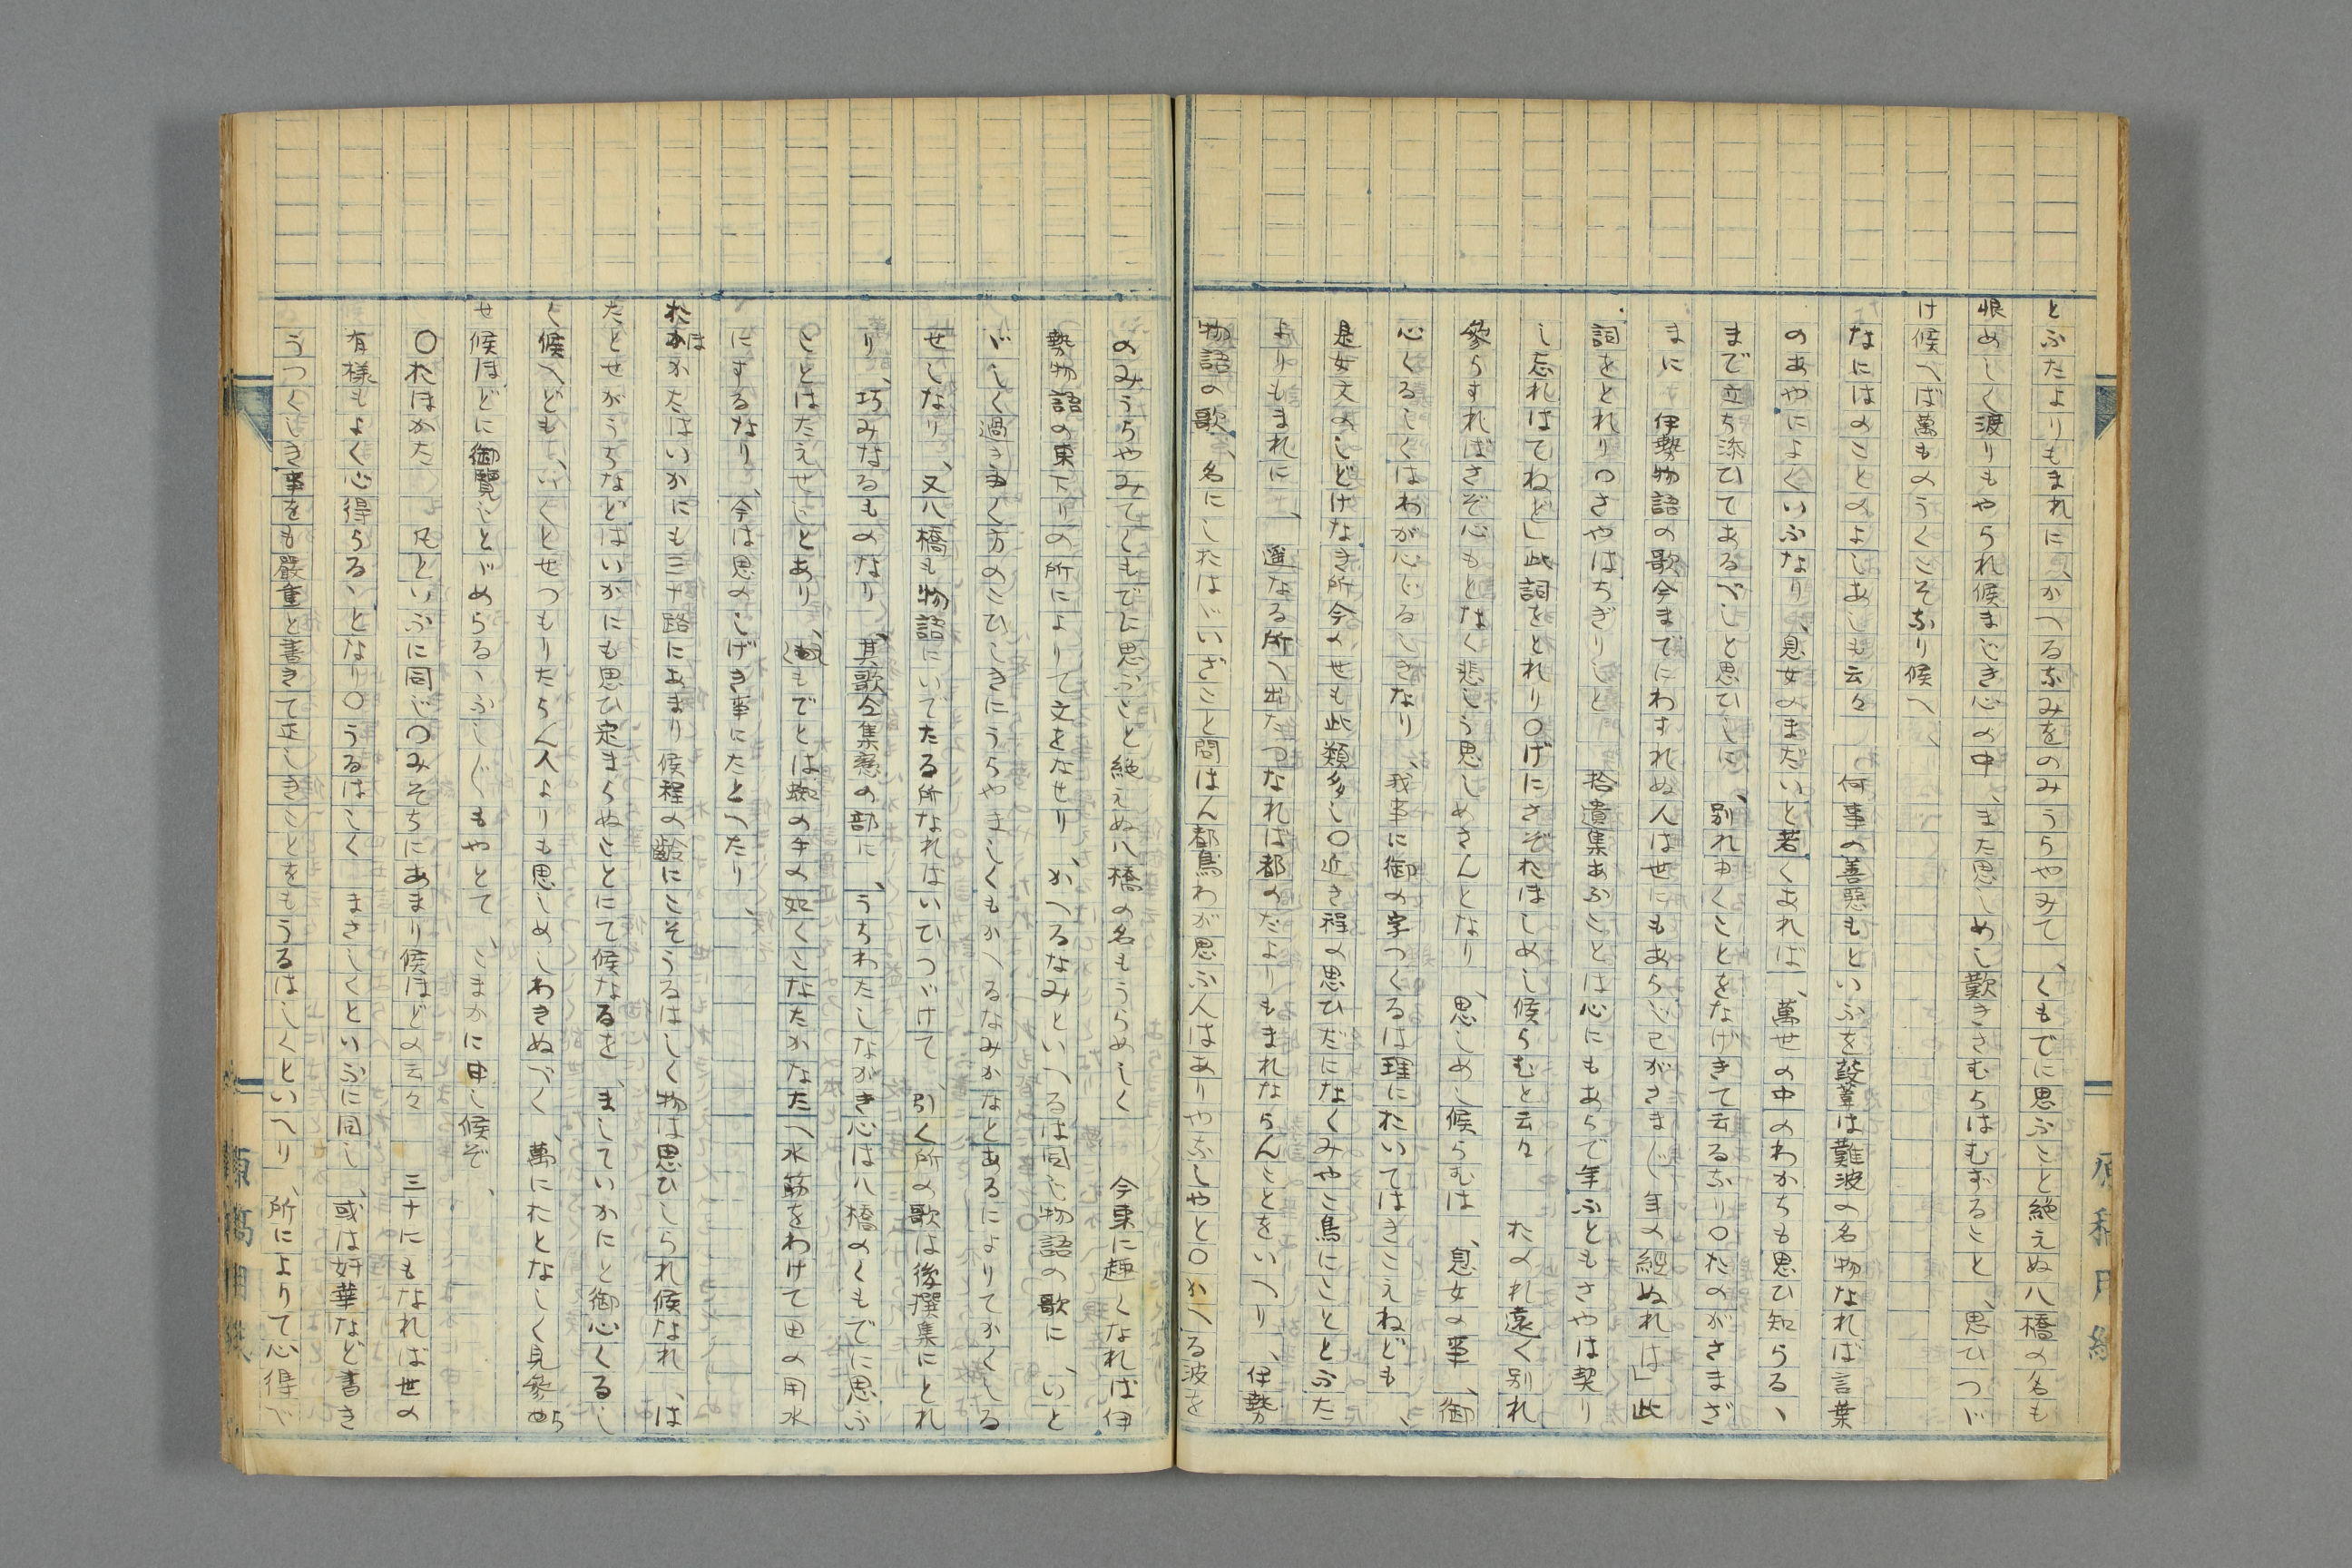 とふたよりもまれに、かへるなみをのみうらやみて、くもでに思ふこと絶えぬ八橋の名も
恨めしく渡りもやられ候まじき心の中、また思しめし歎きさむらはむずること、思ひつゞ
け候へば萬ものうくこそなり候へ
なにはのことのよしあしも云々　何事の善惡もといふを、葭葦は難波の名物なれば言葉
のあやによくいふなり、息女のまだいと若くあれば、萬世の中のわかちも思ひ知らるゝ
まで立ち添ひてあるべしと思ひしに、別れ申くことをなげきて云るなり〇たのがさまざ
まに　伊勢物語の歌今までにわすれぬ人は世にもあらじ己がさまじ年の經ぬれは」此
詞をとれり〇さやはちぎりしと　拾遺集あふことは心にもあらで年ふともさやは契り
し忘れはてねと」此詞をとれり〇げにさぞおほしめし候らむと云々　たのれ遠く別れ
參らすればさぞ心もとなく悲しう思しめさんとなり、思しめし候らむは、息女の事、御
心くるしくはわが心じるしきなり、我事に御の字つくるは理にたいてはきこえねども、
是女文のしどけなき所今の世も此類多し〇近き程の思ひだになくみやこ鳥にこととふた
よりもまれに、遥なる所へ出たつなれば都のたよりもまれならんことをいへり、伊勢
物語の歌、名にしたはゞいざこと問はん都鳥わが思ふ人はありやなしやと〇かへる波を
のみうらやみてくもでに思ふこと絶えぬ八橋の名もうらめしく　今東に趣くなれば伊
勢物語の東下りの所によりて文をなせり、かへるなみといへるは同じ物語の歌に、いと
ゞしく過きゆく方のこひしきにうらやましくもかへるなみかなとあるによりてかくしる
せしなり、又八橋も物語にいでたる所なれはいひつゞけて、引く所の歌は後撰集にとれ
り、巧みなるものなり、其歌全集戀の部に、うちわたしながき心は八橋のくもでに思ふ
ことはたえせじとあり、くもでとは蜘の手の如くこなたかなたへ水筋をわけて田の用水
にするなり、今は思のしげき事にたとへたり、
おほかたはいかにも三十路にあまり候程の齡にこそうるはしく物は思ひしられ候なれ、は
たとせがうちなどはいかにも思ひ定まらぬことにて候なるを、ましていかにと御心くるし
く候へども、いくとせつもりたらん人よりも思しめしわきぬべく、萬にたとなしく見參らせ
候ほどに御覽じとゞめらるゝふしじもやとて、こまかに申し候ぞ、
〇おほかた　凡といふに同じ〇みそちにあまり候ほどの云々　三十にもなれば世の
有樣もよく心得らるゝとなり〇うるはしく　まさしくといふに同し、或は姸華など書き
うつくしき事をも嚴重と書きて正しきことをもうるはしくといへり、所によりて心得べ